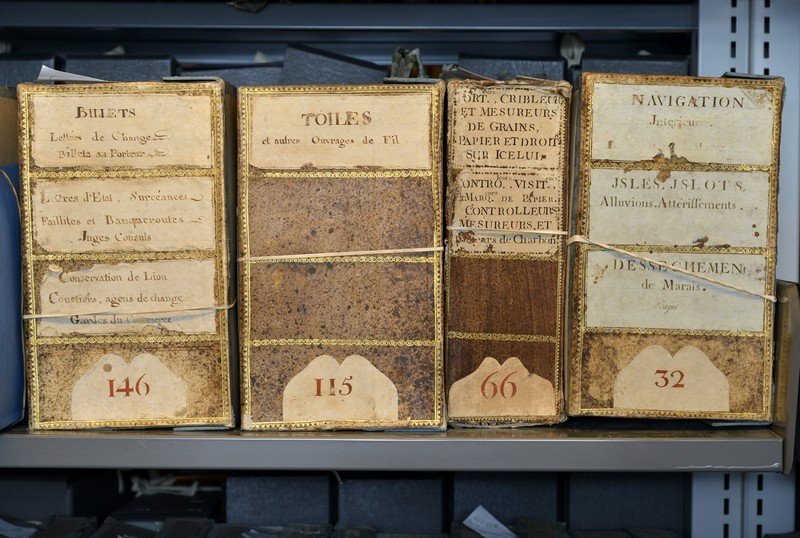 BILLETS
Lettres de Change
Billets au Porteur
Lettres d'Etat, Surcéances
Faillites et Banqueroutes
Juges Consuls
Conservation de Lion
Courtiers, agens de change
Gardes du Commerce
146
TOILES
et autres Ouvrages de Fil
115
PORT. CRIBLEURS
ET MESUREURS
DE GRAINS,
PAPIER ET DROIT
SUR ICELUI.
CONTRO. VISIT.
MARQ. DE PAPIER.
CONTROLLEURS
MESUREURS, ET
de Charbon
66
NAVIGATION
Interieure.
JSLES, JSLOTS,
Alluvions. Attérissements.
DESSECHEMENS
de Marais.
32